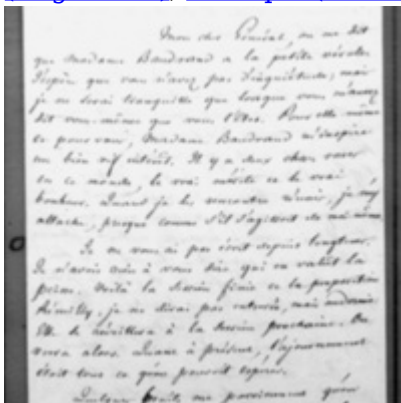 Mon cher Général, on me dit
que Madame Baudrand a la petite vérole.
J'espère que vous n'avez pas d'inquiétude, mais
je ne serai tranquille que lorsque vous m'aurez
dit vous-même que vous l'êtes. Pour elle même
et pour vous, Madame Baudrand m'inspire
un bien vif intérêt. Il y a deux choses rares
en ce monde, le vrai mérite et le vrai
bonheur. Quand je les rencontre réunis, je m'y
attache, presque comme s'il s'agissait de moi-même.
Je ne vous ai pas écrit depuis longtemps.
Je n'avais rien à vous dire qui en valût la
peine. Voilà la session finie et la proposition
Rémilly, je ne dirai pas enterrée, mais
Elle se réveillera à la session prochaine. On
verra alors. Quant à présent, l'ajournement
était tout ce qu'on pouvait espérer.
Quelques bruits me parviennent qu'on